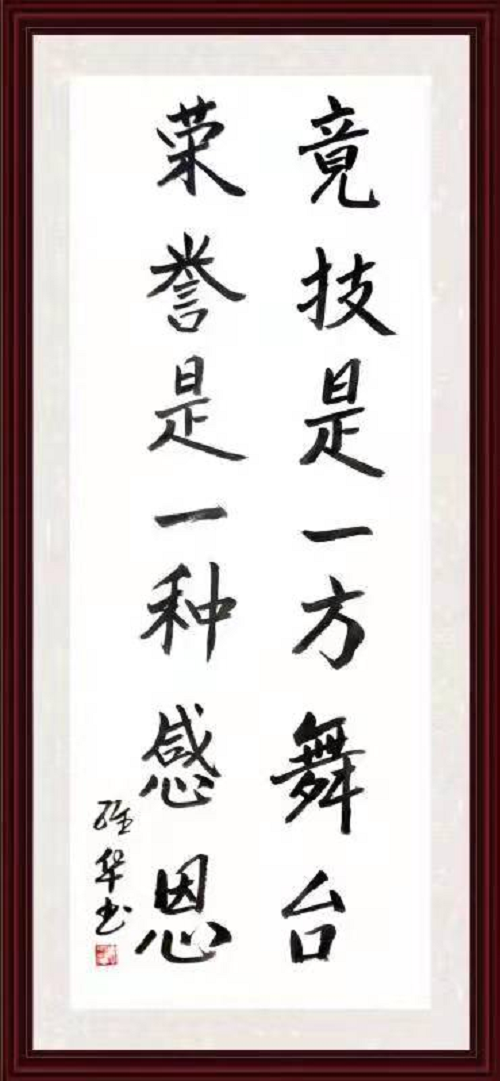 竟技是一方舞台
荣誉是一种感恩
华书